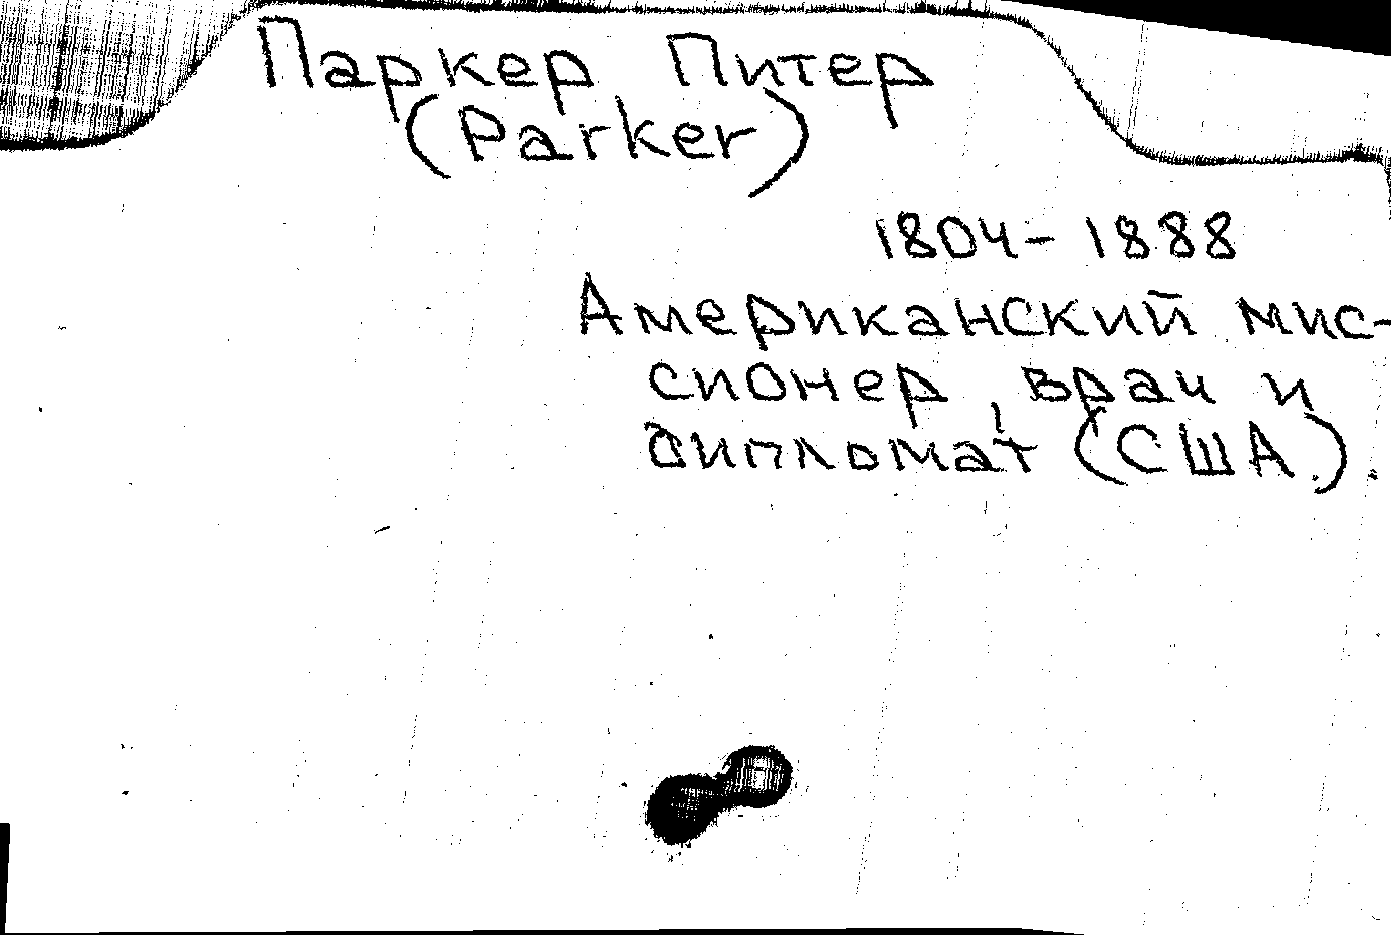 Паркер Питер
(Parker)
1804-1888
Американский мис-
сионер, врач и
дипломат (США).